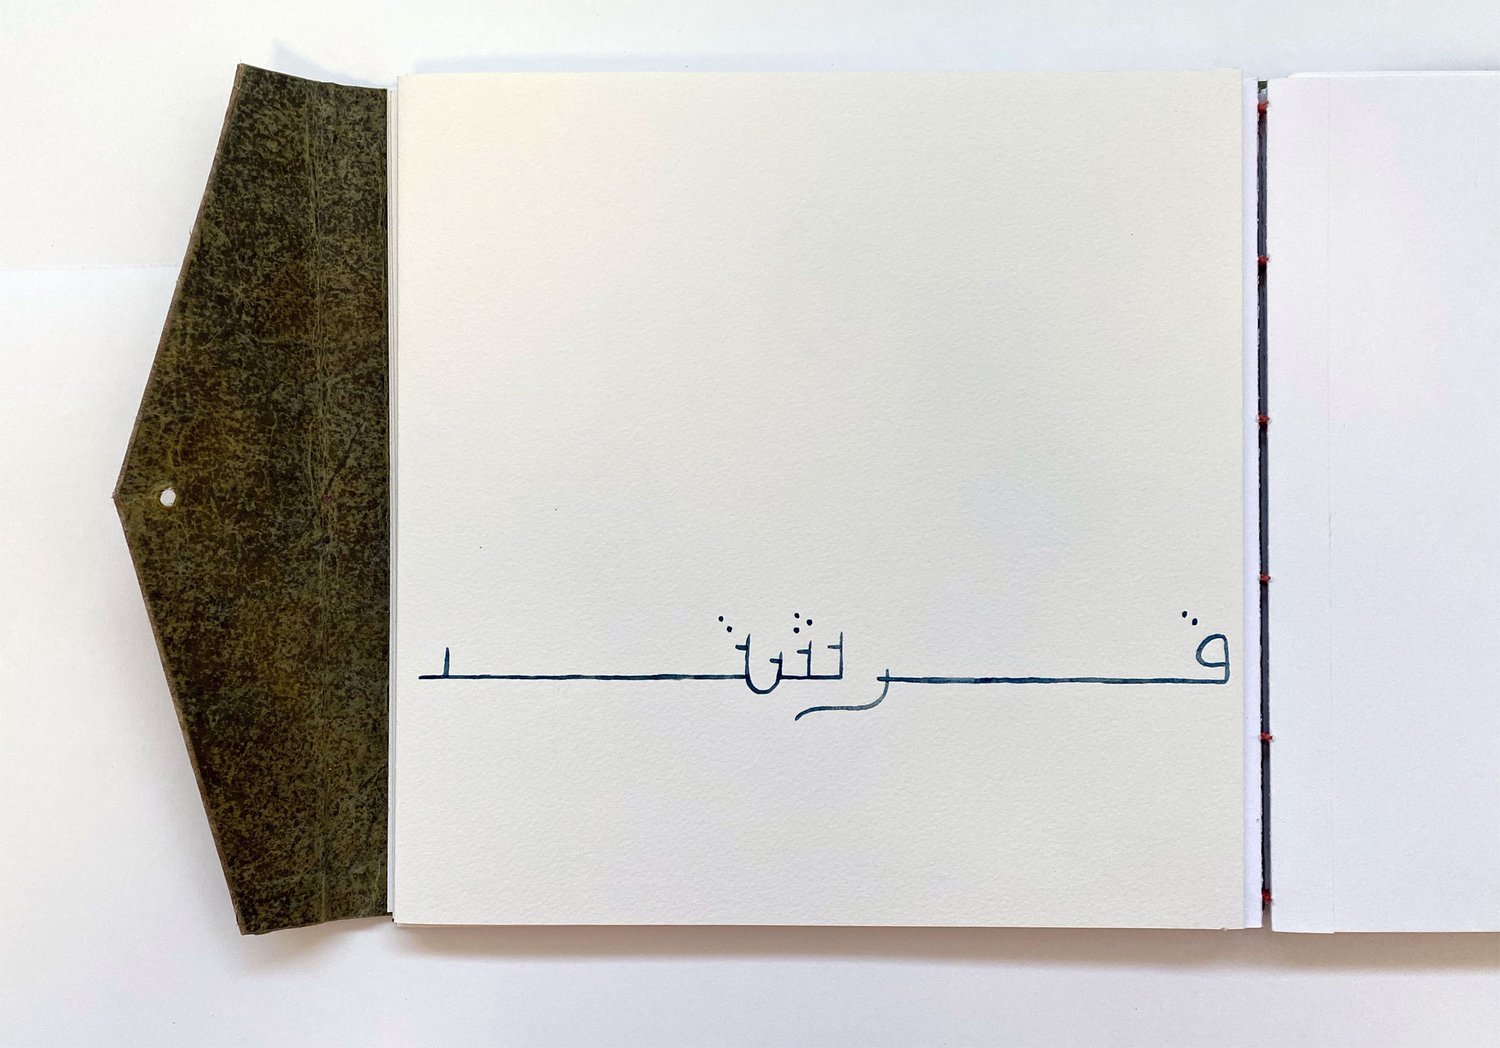 قرشت